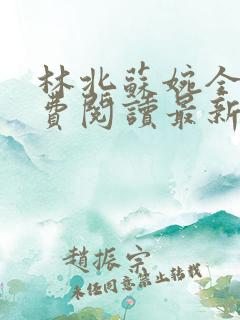 林北蘇婉全
費閱讀最新
趙振宗
未经同意禁止转载